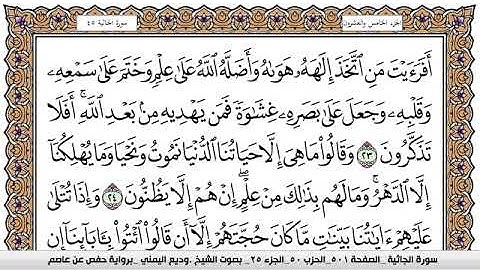 الجزء الخامس والعشرون
سورة الجاثية ٤٥
أَفَرَءَيْتَ مَنِ ٱتَّخَذَ إِلَٰهَهُۥ هَوَىٰهُ وَأَضَلَّهُ ٱللَّهُ عَلَىٰ عِلْمٍ وَخَتَمَ عَلَىٰ سَمْعِهِۦ
وَقَلْبِهِۦ وَجَعَلَ عَلَىٰ بَصَرِهِۦ غِشَٰوَةً فَمَن يَهْدِيهِ مِنۢ بَعْدِ ٱللَّهِ ۚ أَفَلَا
تَذَكَّرُونَ ٢٣ وَقَالُوا۟ مَا هِىَ إِلَّا حَيَاتُنَا ٱلدُّنْيَا نَمُوتُ وَنَحْيَا وَمَا يُهْلِكُنَآ
إِلَّا ٱلدَّهْرُ ۚ وَمَا لَهُم بِذَٰلِكَ مِنْ عِلْمٍ ۖ إِنْ هُمْ إِلَّا يَظُنُّونَ ٢٤ وَإِذَا تُتْلَىٰ
عَلَيْهِمْ ءَايَٰتُنَا بَيِّنَٰتٍ مَّا كَانَ حُجَّتَهُمْ إِلَّآ أَن قَالُوا۟ ٱئْتُوا۟ بِـَٔابَآئِنَآ إِن
سورة الجاثية _ الصفحة ٥٠١ _ الحزب ٥٠ _ الجزء ٢٥ _ بصوت الشيخ _ وديع اليمني _ برواية حفص عن عاصم